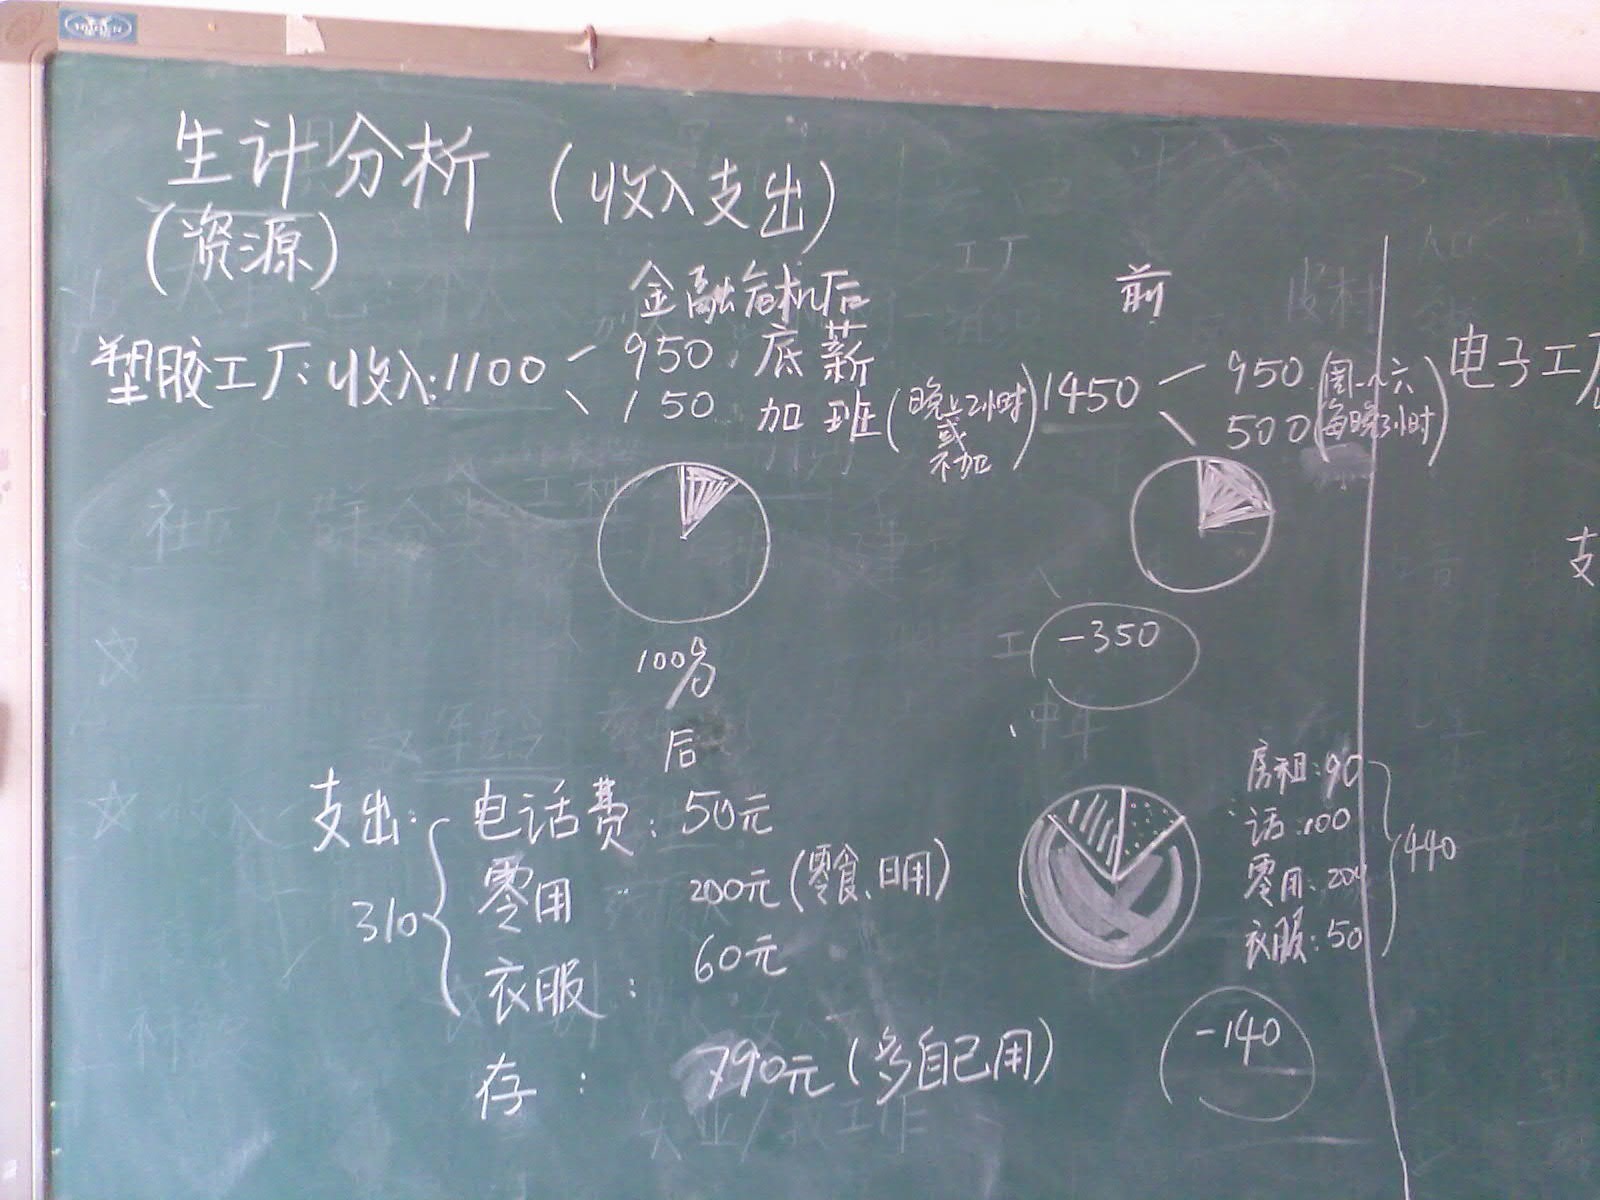 生计分析(收入支出)
(资源)
金融危机后
前
塑胶工厂:收入:1100
950 底薪
150 加班(晚上2小时或不加)
1450
950(周一~六)
500(每晚3小时)
电子工厂
-350
100分
后
支
支出:
310
电话费:50元
零用 200元(零食、日用)
衣服: 60元
存: 790元(多自己用)
房租:90
话:100
零用:200
衣服:50
440
-140